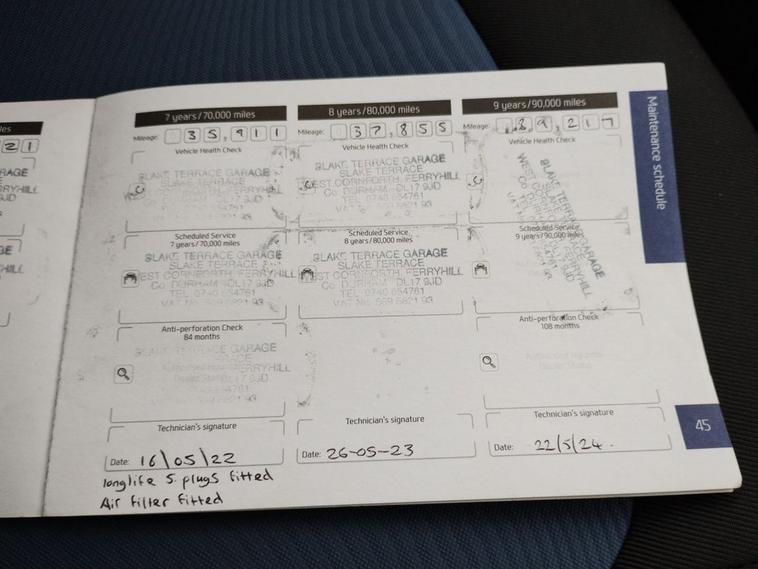 les
21
RAGE
RRYHILL
9JD
GE
HILL
7 years/70,000 miles
Mileage: 35,911
Vehicle Health Check
BLAKE TERRACE GARAGE
SLAKE TERRACE
WEST CORNFORTH, FERRYHILL
Co DURHAM DL17 9JD
Scheduled Service
7 years/70,000 miles
SLAKE TERRACE GARAGE
SLAKE TERRACE
WEST CORNFORTH, FERRYHILL
Co DURHAM DL17 9JD
TEL 0740 654761
Anti-perforation Check
84 months
SLAKE TERRACE GARAGE
Technician's signature
Date: 16/05/22
longlife s plugs fitted
Air filter fitted
8 years/80,000 miles
Mileage: 37,855
Vehicle Health Check
SLAKE TERRACE GARAGE
SLAKE TERRACE
WEST CORNFORTH, FERRYHILL
Co DURHAM DL17 9JD
TEL 0740 654761
Scheduled Service
8 years/80,000 miles
SLAKE TERRACE GARAGE
SLAKE TERRACE
WEST CORNFORTH, FERRYHILL
Co DURHAM DL17 9JD
TEL 0740 654761
Technician's signature
Date: 26-05-23
9 years/90,000 miles
Mileage: 39,217
Vehicle Health Check
Scheduled Service
9 years/90,000 miles
Anti-perforation Check
108 months
Technician's signature
Date: 22/5/24.
Maintenance schedule
45